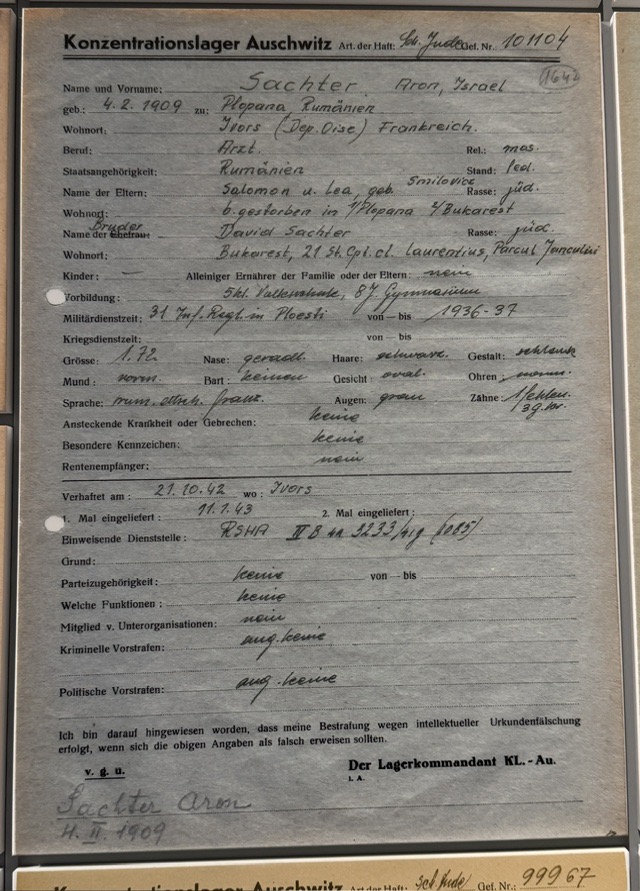 Konzentrationslager Auschwitz Art. der Haft: Sch. Jude Gef. Nr. 101104
1642
Name und Vorname: Sachter Aron, Israel
geb.: 4.2.1909 zu: Plopana, Rumänien
Wohnort: Ivors (Dep. Oise) Frankreich.
Beruf: Arzt. Rel.: mos.
Staatsangehörigkeit: Rumänien Stand: led.
Name der Eltern: Salomon u. Lea, geb. Smilovici Rasse: jüd.
Wohnort: b. gestorben in 1/Plopana 2/Bukarest
Bruder
Name der Ehefrau: David Sachter Rasse: jüd.
Wohnort: Bukarest, 21 St. Cpt. cl. Laurentius, Parcul
Kinder: — Alleiniger Ernährer der Familie oder der Eltern: nein
Vorbildung: 5 kl. Volksschule, 8 J. Gymnasium
Militärdienstzeit: 31 Inf. Regt. in Ploesti von — bis 1936-37
Kriegsdienstzeit: von — bis
Grösse: 1.72 Nase: geradl. Haare: schwarz. Gestalt: schlank
Mund: norm. Bart: keinen Gesicht: oval. Ohren: norm.
Sprache: rum. dtsch. franz. Augen: grau Zähne: 1 fehlen.
Ansteckende Krankheit oder Gebrechen: keine
Besondere Kennzeichen: keine
Rentenempfänger: nein
Verhaftet am: 21.10.42 wo: Ivors
1. Mal eingeliefert: 11.1.43 2. Mal eingeliefert:
Einweisende Dienststelle: RSHA IV B 4a 3233/41g (1085)
Grund:
Parteizugehörigkeit: keine von — bis
Welche Funktionen: keine
Mitglied v. Unterorganisationen: nein
Kriminelle Vorstrafen: ang. keine
Politische Vorstrafen: ang. keine
Ich bin darauf hingewiesen worden, dass meine Bestrafung wegen intellektueller Urkundenfälschung
erfolgt, wenn sich die obigen Angaben als falsch erweisen sollten.
v. g. u. Der Lagerkommandant KL.-Au.
i. A.
Sachter Aron
4. II. 1909
Konzentrationslager Auschwitz Art. der Haft: Sch. Jude Gef. Nr.: 99967